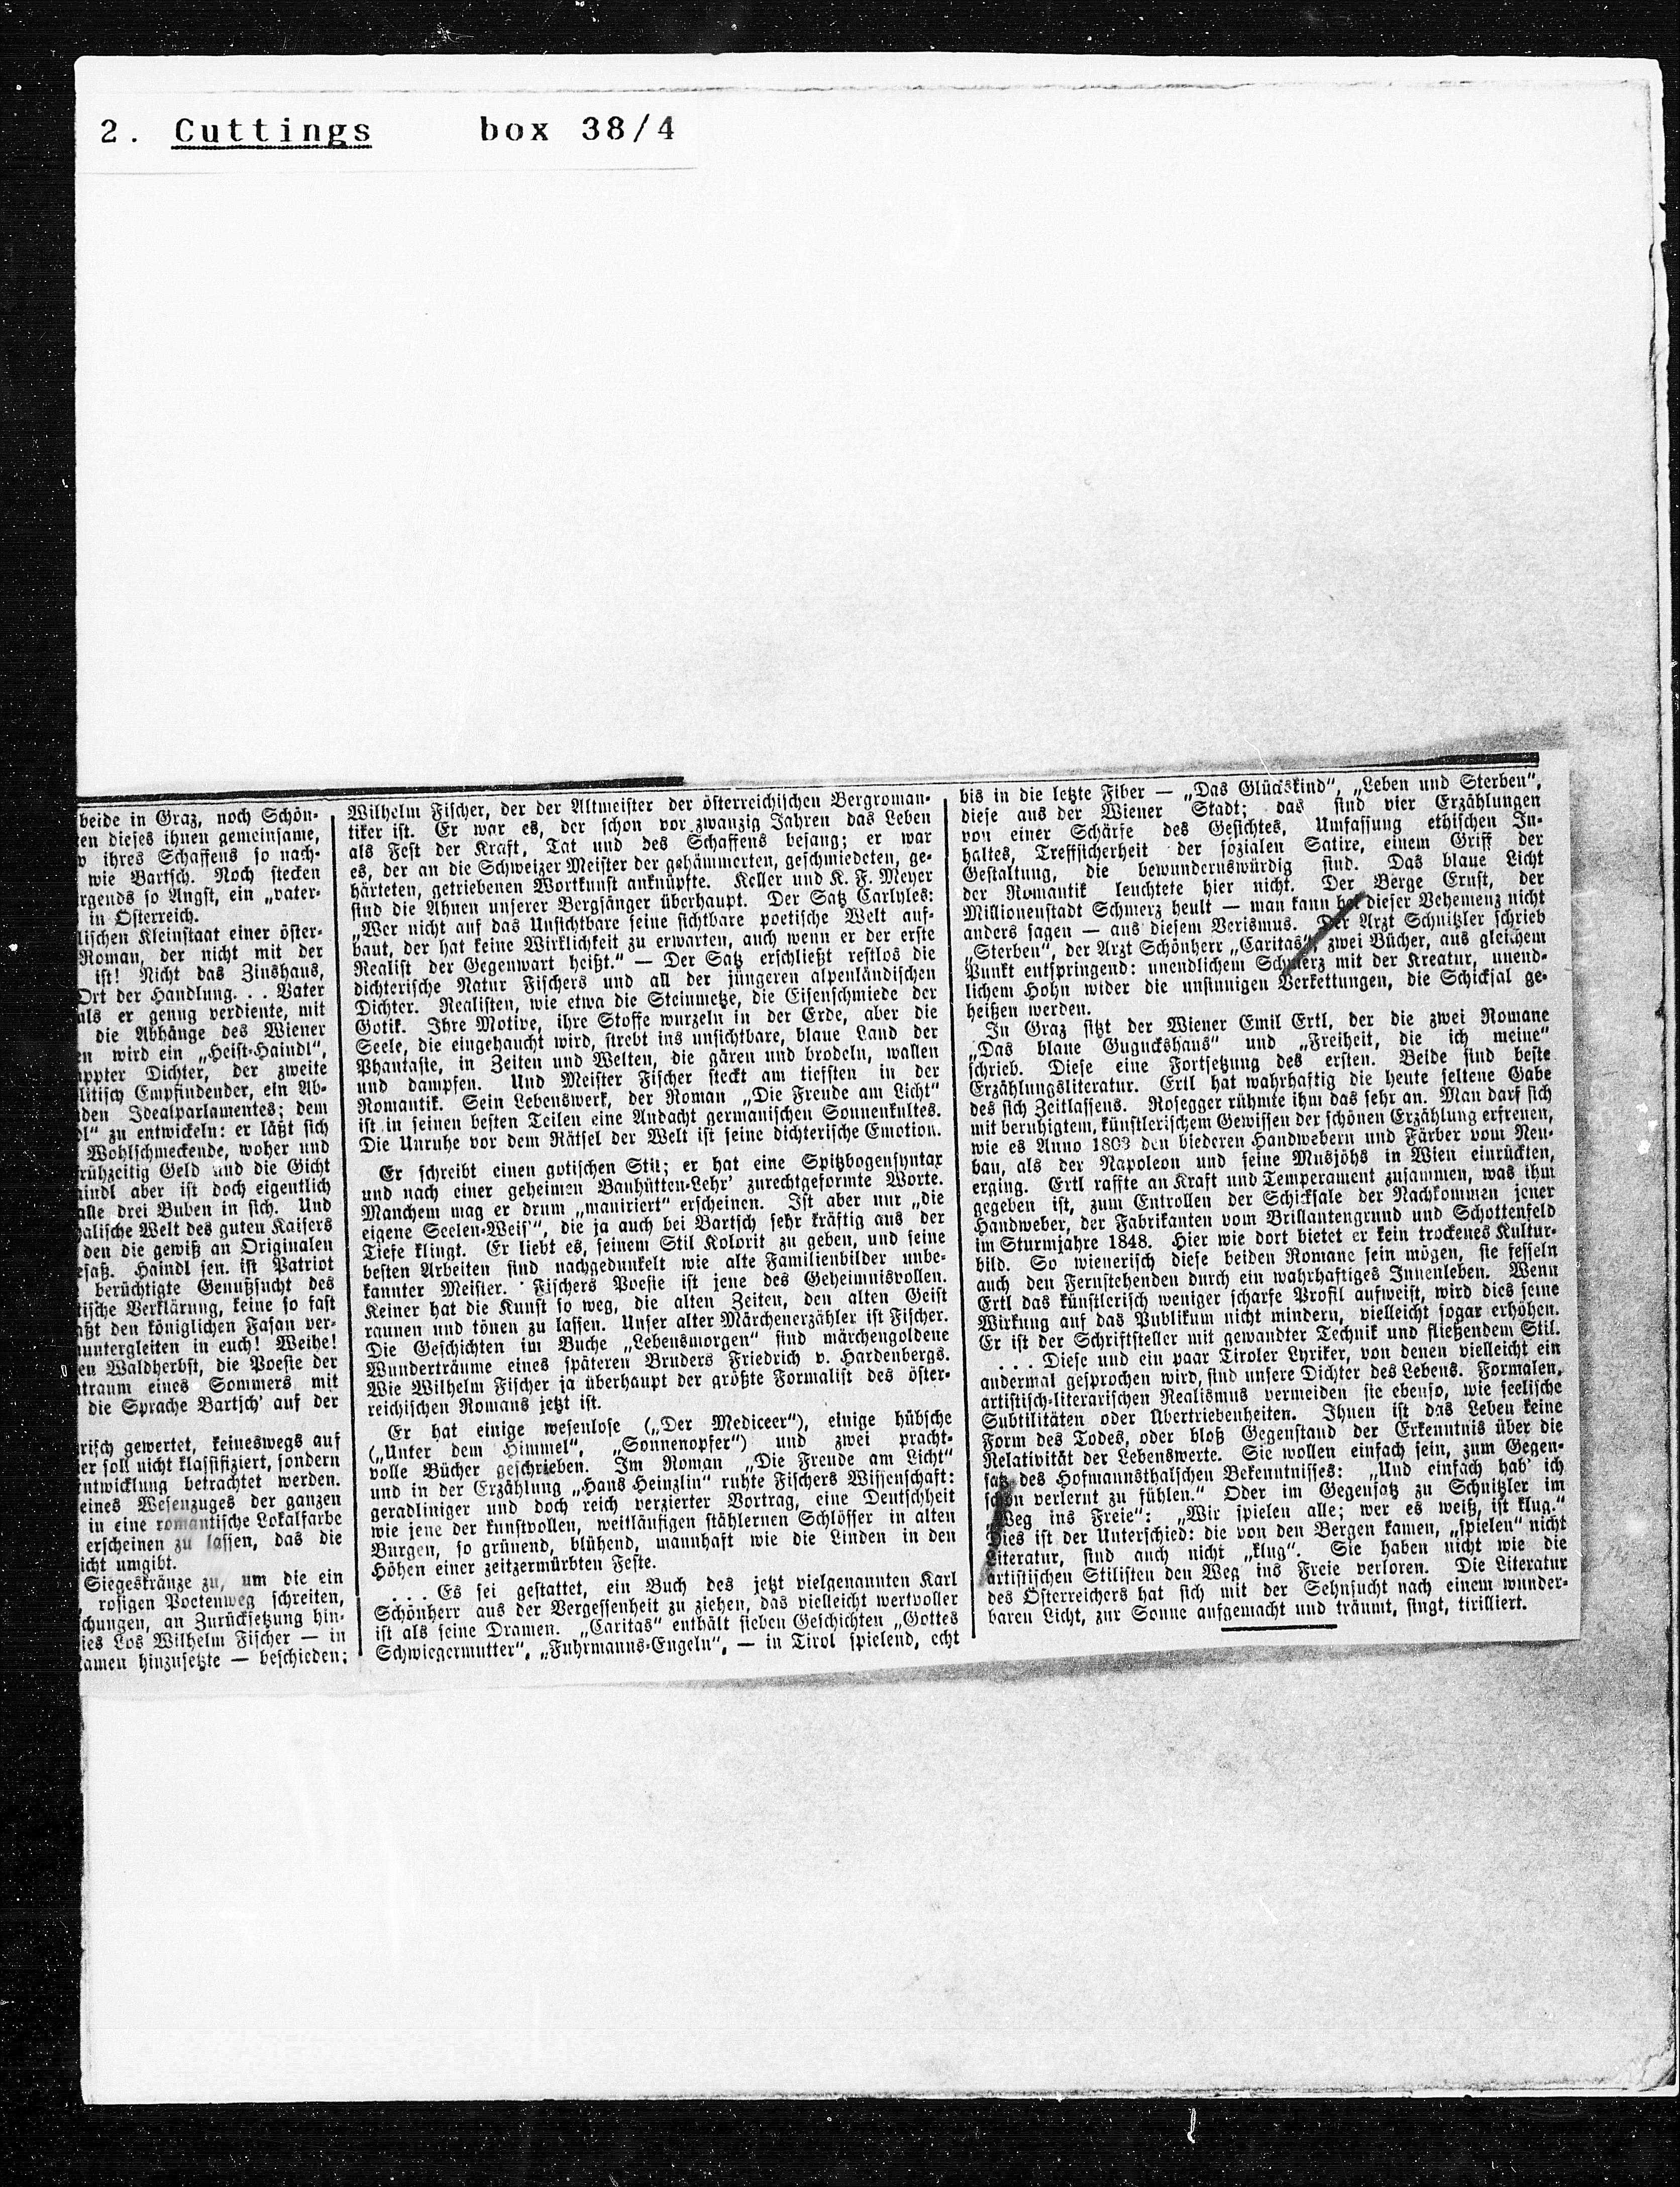 2. Cuttings box 38/4
beide in Graz, noch Schön-
en dieses ihnen gemeinsame,
ihres Schaffens so nach-
wie Bartsch. Noch stecken
rgends so Angst, ein „vater-
in Österreich.
lischen Kleinstaat einer öster-
Roman, der nicht mit der
ist! Nicht das Zinshaus,
Ort der Handlung. . . Vater
als er genug verdiente, mit
die Abhänge des Wiener
en wird ein „Heist-Haindl“,
appter Dichter, der zweite
litisch Empfindender, ein Ab-
den Idealparlamentes; dem
dl“ zu entwickeln: er läßt sich
Wohlschmeckende, woher und
rühzeitig Geld und die Gicht
aindl aber ist doch eigentlich
alle drei Buben in sich. Und
alische Welt des guten Kaisers
den die gewiß an Originalen
esaß. Haindl sen. ist Patriot
berüchtigte Genußsucht des
tische Verklärung, keine so fast
aßt den königlichen Fasan ver-
untergleiten in euch! Weihe!
en Waldherbst, die Poesie der
traum eines Sommers mit
die Sprache Bartsch' auf der
risch gewertet, keineswegs auf
er soll nicht klassifiziert, sondern
ntwicklung betrachtet werden.
eines Wesenzuges der ganzen
in eine romantische Lokalfarbe
erscheinen zu lassen, das die
icht umgibt.
Siegeskränze zu, um die ein
rosigen Poetenweg schreiten,
chungen, an Zurücksetzung hin-
ies Los Wilhelm Fischer — in
amen hinzusetzte — beschieden;
Wilhelm Fischer, der der Altmeister der österreichischen Bergroman-
tiker ist. Er war es, der schon vor zwanzig Jahren das Leben
als Fest der Kraft, Tat und des Schaffens besang; er war
es, der an die Schweizer Meister der gehämmerten, geschmiedeten, ge-
härteten, getriebenen Wortkunst anknüpfte. Keller und K. F. Meyer
sind die Ahnen unserer Bergsänger überhaupt. Der Satz Carlyles:
„Wer nicht auf das Unsichtbare seine sichtbare poetische Welt auf-
baut, der hat keine Wirklichkeit zu erwarten, auch wenn er der erste
Realist der Gegenwart heißt.“ — Der Satz erschließt restlos die
dichterische Natur Fischers und all der jüngeren alpenländischen
Dichter. Realisten, wie etwa die Steinmetze, die Eisenschmiede der
Gotik. Ihre Motive, ihre Stoffe wurzeln in der Erde, aber die
Seele, die eingehaucht wird, strebt ins unsichtbare, blaue Land der
Phantasie, in Zeiten und Welten, die gären und brodeln, wallen
und dampfen. Und Meister Fischer steckt am tiefsten in der
Romantik. Sein Lebenswerk, der Roman „Die Freude am Licht“
ist in seinen besten Teilen eine Andacht germanischen Sonnenkultes.
Die Unruhe vor dem Rätsel der Welt ist seine dichterische Emotion.
Er schreibt einen gotischen Stil; er hat eine Spitzbogensyntax
und nach einer geheimen Bauhütten-Lehr' zurechtgeformte Worte.
Manchem mag er drum „maniriert“ erscheinen. Ist aber nur „die
eigene Seelen-Weis'“, die ja auch bei Bartsch sehr kräftig aus der
Tiefe klingt. Er liebt es, seinem Stil Kolorit zu geben, und seine
besten Arbeiten sind nachgedunkelt wie alte Familienbilder unbe-
kannter Meister. Fischers Poesie ist jene des Geheimnisvollen.
Keiner hat die Kunst so weg, die alten Zeiten, den alten Geist
raunen und tönen zu lassen. Unser alter Märchenerzähler ist Fischer.
Die Geschichten im Buche „Lebensmorgen“ sind märchengoldene
Wunderträume eines späteren Bruders Friedrich v. Hardenbergs.
Wie Wilhelm Fischer ja überhaupt der größte Formalist des öster-
reichischen Romans jetzt ist.
Er hat einige wesenlose („Der Mediceer“), einige hübsche
(„Unter dem Himmel“, „Sonnenopfer“) und zwei pracht-
volle Bücher geschrieben. Im Roman „Die Freude am Licht“
und in der Erzählung „Hans Heinzlin“ ruhte Fischers Wissenschaft:
geradliniger und doch reich verzierter Vortrag, eine Deutschheit
wie jene der kunstvollen, weitläufigen stählernen Schlösser in alten
Burgen, so grünend, blühend, mannhaft wie die Linden in den
Höhen einer zeitzermürbten Feste.
. . . Es sei gestattet, ein Buch des jetzt vielgenannten Karl
Schönherr aus der Vergessenheit zu ziehen, das vielleicht wertvoller
ist als seine Dramen. „Caritas“ enthält sieben Geschichten „Gottes
Schwiegermutter“, „Fuhrmanns-Engeln“, — in Tirol spielend, echt
bis in die letzte Fiber — „Das Glückskind“, „Leben und Sterben“,
diese aus der Wiener Stadt; das sind vier Erzählungen
von einer Schärfe des Gesichtes, Umfassung ethischen In-
haltes, Treffsicherheit der sozialen Satire, einem Griff der
Gestaltung, die bewundernswürdig sind. Das blaue Licht
der Romantik leuchtete hier nicht. Der Berge Ernst, der
Millionenstadt Schmerz heult — man kann bei dieser Vehemenz nicht
anders sagen — aus diesem Verismus. Der Arzt Schnitzler schrieb
„Sterben“, der Arzt Schönherr „Caritas“, zwei Bücher, aus gleichem
Punkt entspringend: unendlichem Schmerz mit der Kreatur, unend-
lichem Hohn wider die unsinnigen Verkettungen, die Schicksal ge-
heißen werden.
In Graz sitzt der Wiener Emil Ertl, der die zwei Romane
„Das blaue Guguckshaus“ und „Freiheit, die ich meine“
schrieb. Diese eine Fortsetzung des ersten. Beide sind beste
Erzählungsliteratur. Ertl hat wahrhaftig die heute seltene Gabe
des sich Zeitlassens. Rosegger rühmte ihm das sehr an. Man darf sich
mit beruhigtem, künstlerischem Gewissen der schönen Erzählung erfreuen,
wie es Anno 1803 den biederen Handwebern und Färber vom Neu-
bau, als der Napoleon und seine Musjöhs in Wien einrückten,
erging. Ertl raffte an Kraft und Temperament zusammen, was ihm
gegeben ist, zum Entrollen der Schicksale der Nachkommen jener
Handweber, der Fabrikanten vom Brillantengrund und Schottenfeld
im Sturmjahre 1848. Hier wie dort bietet er kein trockenes Kultur-
bild. So wienerisch diese beiden Romane sein mögen, sie fesseln
auch den Fernstehenden durch ein wahrhaftiges Innenleben. Wenn
Ertl das künstlerisch weniger scharfe Profil aufweist, wird dies seine
Wirkung auf das Publikum nicht mindern, vielleicht sogar erhöhen.
Er ist der Schriftsteller mit gewandter Technik und fließendem Stil.
. . . Diese und ein paar Tiroler Lyriker, von denen vielleicht ein
andermal gesprochen wird, sind unsere Dichter des Lebens. Formalen,
artistisch-literarischen Realismus vermeiden sie ebenso, wie seelische
Subtilitäten oder Übertriebenheiten. Ihnen ist das Leben keine
Form des Todes, oder bloß Gegenstand der Erkenntnis über die
Relativität der Lebenswerte. Sie wollen einfach sein, zum Gegen-
satz des Hofmannsthalschen Bekenntnisses: „Und einfach hab' ich
schon verlernt zu fühlen.“ Oder im Gegensatz zu Schnitzler im
„Weg ins Freie“: „Wir spielen alle; wer es weiß, ist klug.“
Dies ist der Unterschied: die von den Bergen kamen, „spielen“ nicht
Literatur, sind auch nicht „klug“. Sie haben nicht wie die
artistischen Stilisten den Weg ins Freie verloren. Die Literatur
des Österreichers hat sich mit der Sehnsucht nach einem wunder-
baren Licht, zur Sonne aufgemacht und träumt, singt, tirilliert.